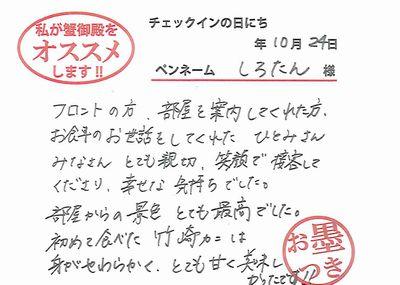 私が蟹御殿を
オススメ
します!!
チェックインの日にち
年10月24日
ペンネーム しろたん 様
フロントの方、部屋を案内してくれた方、
お食事のお世話をしてくれた ひとみさん
みなさん とても親切、笑顔で接客して
くださり、幸せな気持ちでした。
部屋からの景色 とても最高でした。
初めて食べた 竹崎カニは
身がやわらかく、とても甘く美味し
かったです!!
お墨つき